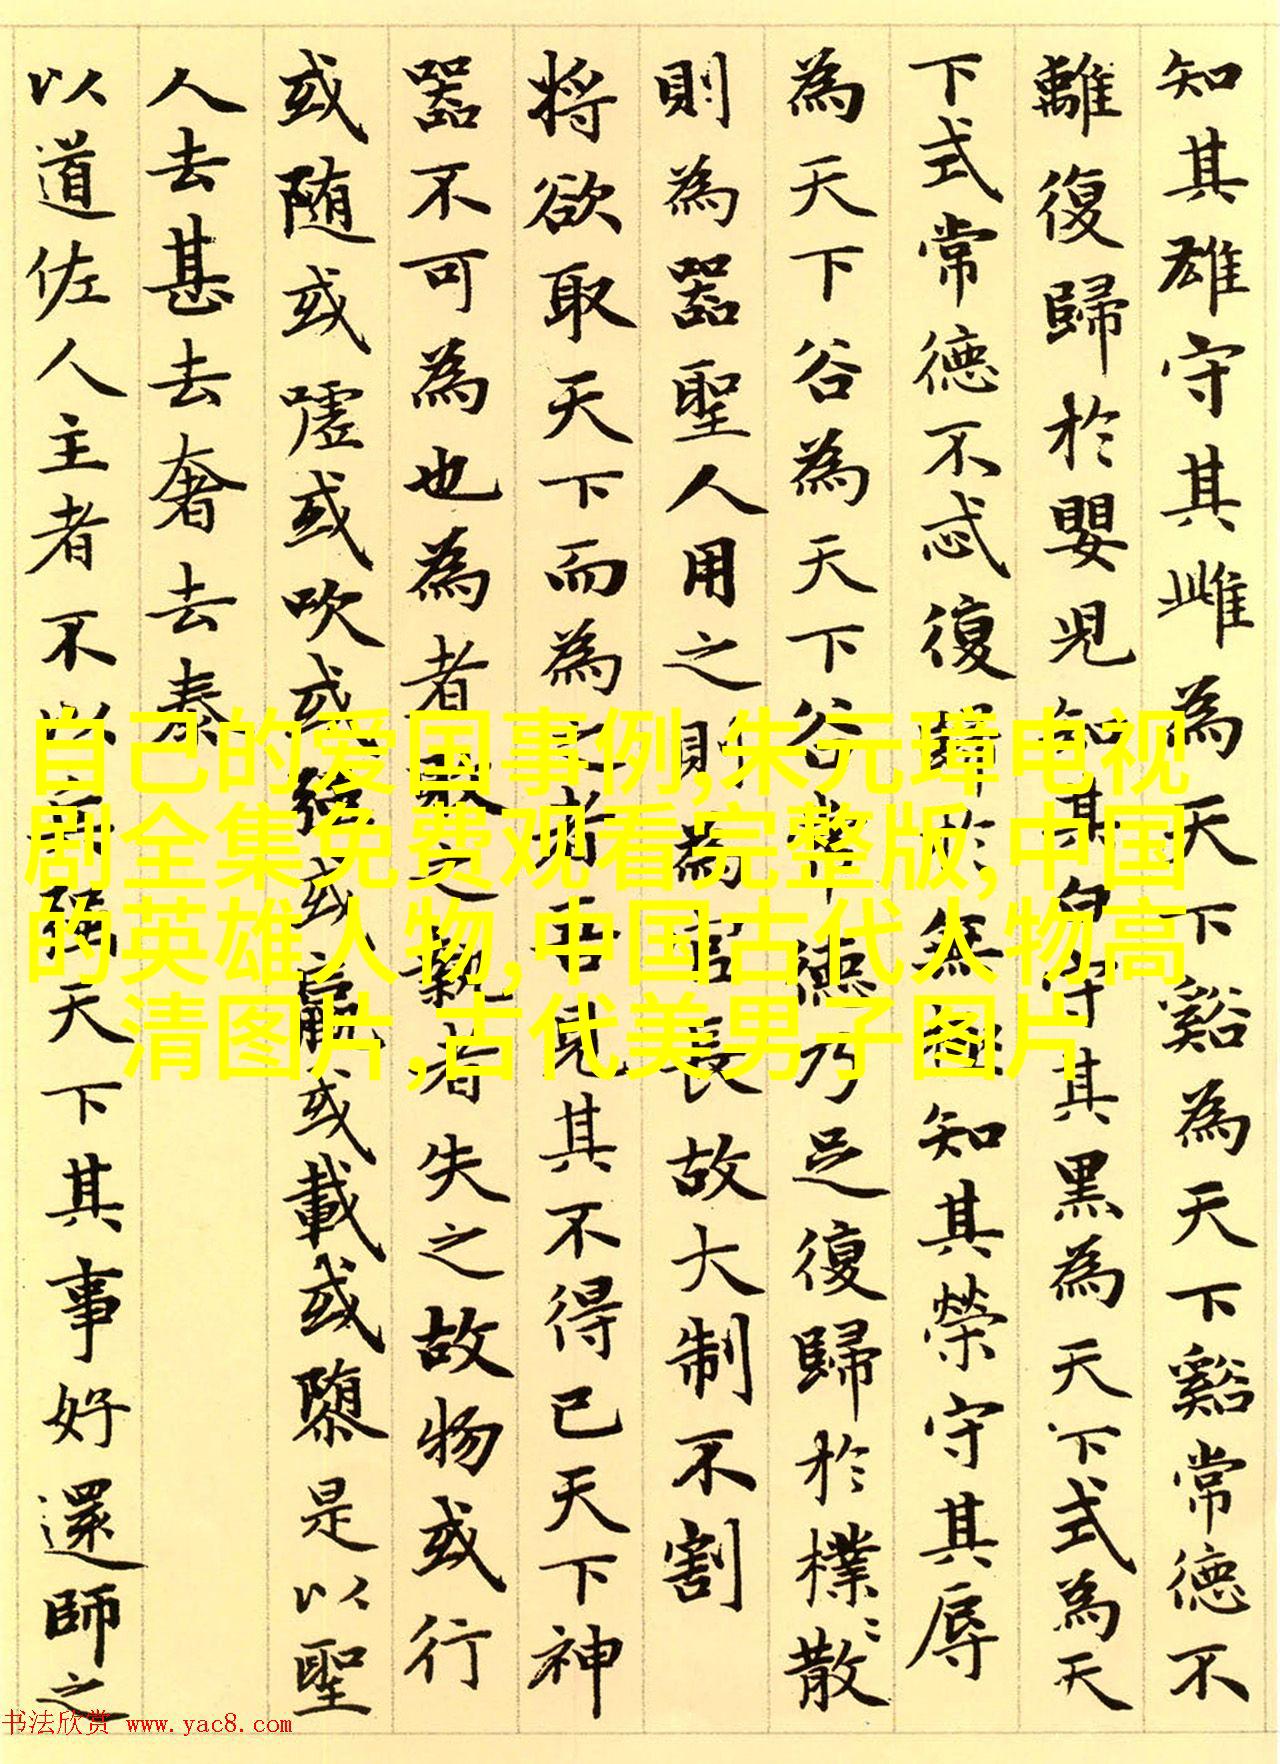 知其雄守其雌為天下谿為天下谿常德不
離復歸於嬰兒知其白守其黑為天下式為天
下式常德不忒復歸於無極知其榮守其辱
為天下谷為天下谷常德乃足復歸於樸〻散
則為器聖人用之則為官長故大制不割
将欲取天下而為之者吾見其不得已天下神
器不可為也為者敗之執者失之故物或行
或随或嘘或吹或强或羸或載或隳是以聖
人去甚去奢去泰
以道佐人主者不以兵强天下其事好還師之
自己的爱国事例,朱元璋电视
剧全集免费观看完整版,中国
的英雄人物,中国古代人物高
清图片,古代美男子图片
书法欣赏 www.yac8.com